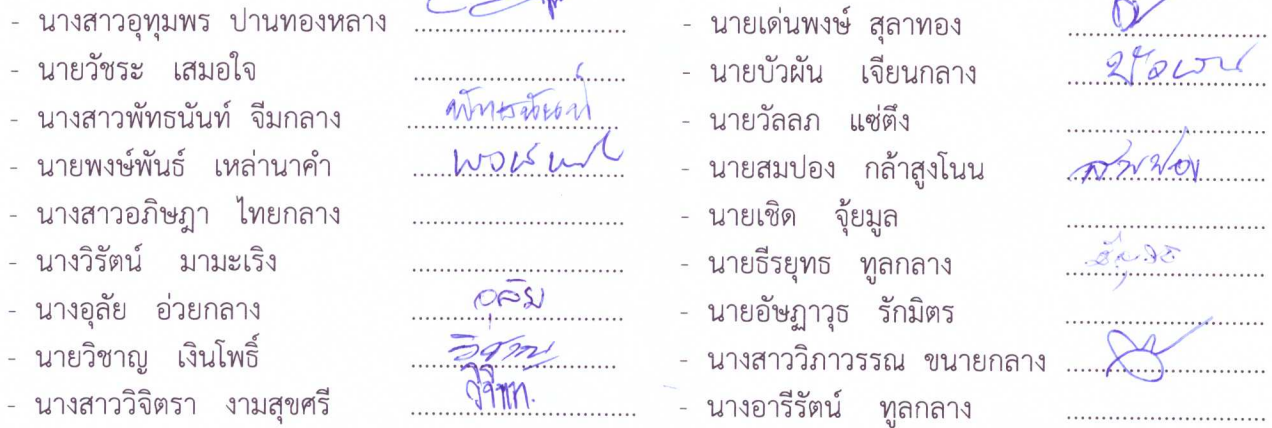 - นางสาวอุทุมพร ปานทองหลาง ........................
- นายวัชระ เสมอใจ ........................
- นางสาวพัทธนันท์ จีมกลาง ........................ พัทธนันท์
- นายพงษ์พันธ์ เหล่านาคำ ........................
- นางสาวอภิษฎา ไทยกลาง ........................
- นางวิรัตน์ มามะเริง ........................
- นางอุลัย อ่วยกลาง ........................ อุลัย
- นายวิชาญ เงินโพธิ์ ........................ วิชาญ
- นางสาววิจิตรา งามสุขศรี ........................
- นายเด่นพงษ์ สุลาทอง ........................
- นายบัวผัน เจียนกลาง ........................
- นายวัลลภ แซ่ตึง ........................
- นายสมปอง กล้าสูงโนน ........................ สมปอง
- นายเชิด จุ้ยมูล ........................
- นายธีรยุทธ ทูลกลาง ........................
- นายอัษฏาวุธ รักมิตร ........................
- นางสาววิภาวรรณ ขนายกลาง ........................
- นางอารีรัตน์ ทูลกลาง ........................